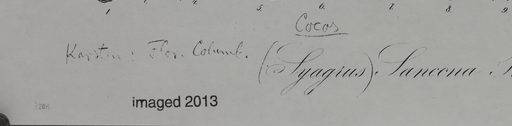 Cocos
Karsten: Flor. Columb. (Syagrus). Sancona.
imaged 2013